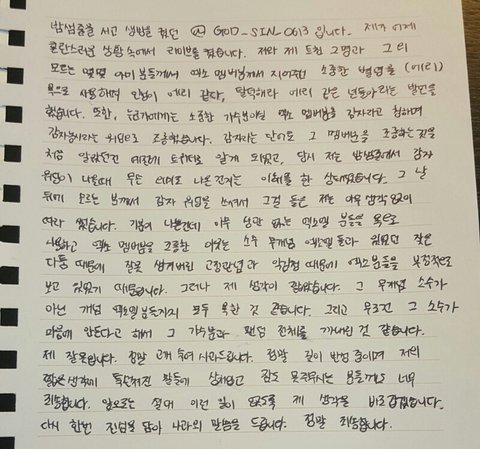 밤샘줄을 서고 생방을 켰던 @GOD_SIN_0613 입니다. 제가 어제
혼란스러운 상황 속에서 라이브를 켰습니다. 저와 제 트친 2명과 그리
모르는 몇몇 아미분들께서 엑소 멤버분께서 지어주신 소중한 별명을 (에리)
욕으로 사용하며 인성이 에리 같다, 탈덕해라 에리 같은 년들아라는 발언을
했습니다. 또한, 누군가에게는 소중한 가수분이실 엑소 멤버분을 감자라고 칭하며
감자튀김이라는 위험으로 조롱했습니다. 감자라는 단어도 그 멤버분을 조롱하는 것을
처음 알았었고 어젯밤 트위터로 알게 되었고, 당시 저는 방방중에서 감자
위험이 나올때 무슨 의미로 나온건지는 이해를 한 상태였습니다. 그 날
뒤에 모르는 분께서 감자 위험을 쓰셔서 그걸 들은 저는 아무 생각없이
따라 했습니다. 기분이 나쁜데 아무 상관 없는 엑소엘 분들을 욕으로
사용하고 엑소 멤버분을 조롱한 이유는 소수 무개념 엑소엘들과 있었던 작은
다툼 때문에 잘못 생겨버린 고정관념과 악감정 때문에 엑소분들을 부정적으로
보고 있었기 때문입니다. 그러나 제 생각이 짧았습니다. 그 무개념 소수가
아닌 개념 엑소엘분들까지 모두 욕한 것 같습니다. 그리고 무조건 그 소수가
마음에 안든다고 해서 그 가수분과 팬덤 전체를 까내린 것 같습니다.
제 잘못입니다. 정말 고개 숙여 사과드립니다. 정말 깊이 반성 중이며 저의
짧은 생각에 특정해진 말들에 상처입고 잠도 못주무시는 분들께도 너무
죄송합니다. 앞으로는 절대 이런 일이 없도록 제 생각을 바로잡겠습니다.
다시 한번 진심을 담아 사과의 말씀을 드립니다. 정말 죄송합니다.